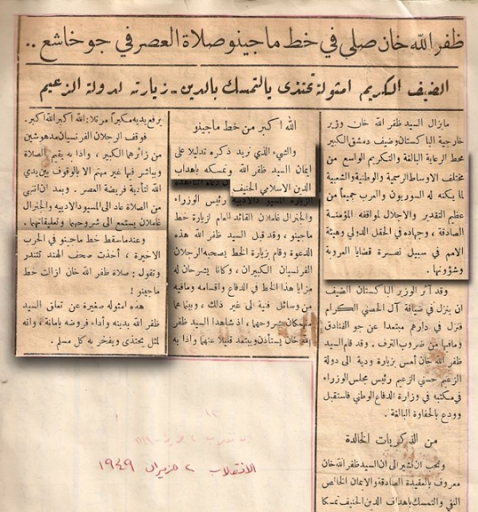 ظفر الله خان صلى في خط ماجينو صلاة العصر في جو خاشع ..
الضيف الكريم امثولة تحتذى بالتمسك بالدين - زيارته لدولة الزعيم
مايزال السيد ظفر الله خان وزير
خارجية الباكستان وضيف دمشق الكبير
محط الرعاية البالغة والتكريم الواسع من
مختلف الاوساط الرسمية والوطنية والشعبية
لما يكنه له السوريون والعرب جميعاً من
عظيم التقدير والاجلال لمواقفه المؤمنة
الصادقة ، وجهاده في الحقل الدولي وهيئة
الامم في سبيل نصرة قضايا العروبة
وشؤونها .
وقد آثر الوزير الباكستاني الضيف
ان ينزل في ضيافة آل الحصني الكرام
فنزل في دارهم مبتعداً عن جو الفنادق
ومافيها من ضروب الترف . وقد قام السيد
ظفر الله خان أمس بزيارة ودية الى دولة
الزعيم حسني الزعيم رئيس مجلس الوزراء
في مكتبه في وزارة الدفاع الوطني فاستقبل
وودع بالحفاوة البالغة .
من الذكريات الخالدة
ونحب ان نشير الى ان السيد ظفر الله خان
معروف بالعقيدة الصادقة والايمان الخالص
النقي والتمسك بأهداف الدين الحنيف تمسكا
الله اكبر من خط ماجينو
والشيء الذي نريد ذكره تدليلا على
ايمان السيد ظفر الله وتمسكه بأهداب
الدين الاسلامي الحنيف
لزيارة المسيو دالادييه رئيس الوزراء
والجنرال غاملان القائد العام لزيارة خط
ماجينو ، وقد قبل السيد ظفر الله هذه
الدعوة وقام بزيارة الخط بصحبه الرجلان
الفرنسيان الكبيران ، وكانا يشرحان له
مزايا هذا الخط في الدفاع واقسامه ومافيه
من وسائل فنية الى غير ذلك ، وبينما هما
بشروحهما ، اذ شاهدا السيد ظفر
الله خان يستأذن ويبتعد قليلا عنهما واذا به
يرفع يديه مكبراً مرتلا : الله اكبر الله اكبر.
فوقف الرجلان الفرنسيان مدهوشين
من زائرهما الكبير ، واذا به يقيم الصلاة
ويباشر فيها غير مهتم الا بالوقوف بين يدي
الله لتأدية فريضة العصر . وبعد ان انتهى
من الصلاة عاد الى المسيو دالادييه والجنرال
غاملان يستمع الى شروحهما وتعليقاتهما .
وعندما سقط خط ماجينو في الحرب
الاخيرة ، أخذت صحف الهند تتندر
وتقول : صلاة ظفر الله خان ازالت خط
ماجينو !
هذه امثولة صغيرة عن تعلق السيد
ظفر الله بدينه وأداء فروضه بأمانة ، وانه
لمثل يحتذى ويفخر به كل مسلم .
الانقلاب ٢ حزيران ١٩٤٩